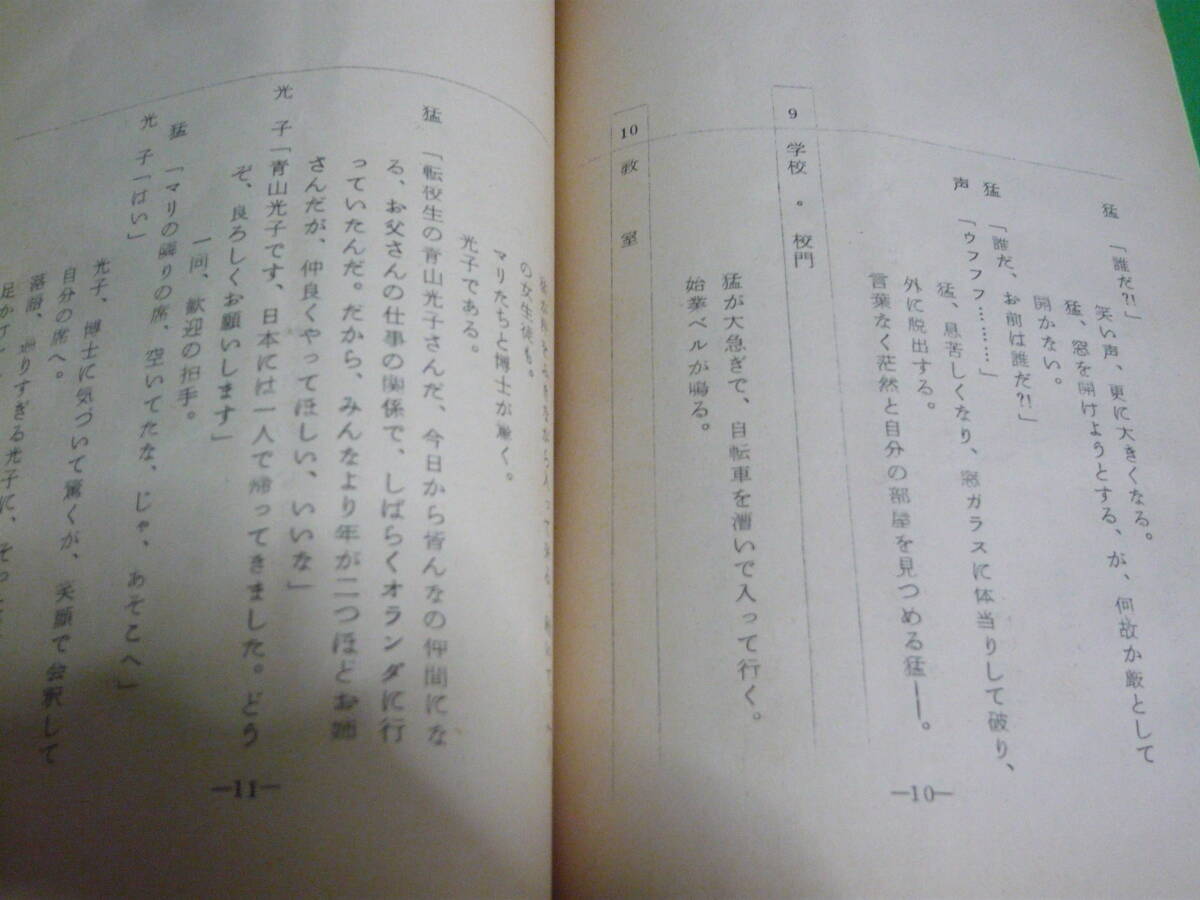 猛　「誰だ?!」
笑い声、更に大きくなる。
猛、窓を開けようとする、が、何故か厳として
開かない。
猛　「誰だ、お前は誰だ?!」
声　「ウフフフ………」
猛、息苦しくなり、窓ガラスに体当りして破り、
外に脱出する。
言葉なく茫然と自分の部屋を見つめる猛――。
9　学校。校門
猛が大急ぎで、自転車を漕いで入って行く。
始業ベルが鳴る。
10　教　室
—10—
の女生徒も。
マリたちと博士が
光子である。
猛　「転校生の青山光子さんだ、今日から皆んなの仲間にな
る、お父さんの仕事の関係で、しばらくオランダに行
っていたんだ。だから、みんなより年が二つほどお姉
さんだが、仲良くやってほしい、いいな」
光　子「青山光子です、日本には一人で帰ってきました。どう
ぞ、良ろしくお願いします」
一同、歓迎の拍手。
猛　「マリの隣りの席、空いてたな、じゃ、あそこへ」
光　子「はい」
光子、博士に気づいて驚くが、笑顔で会釈して
自分の席へ。
りすぎる光子に、そっと
—11—